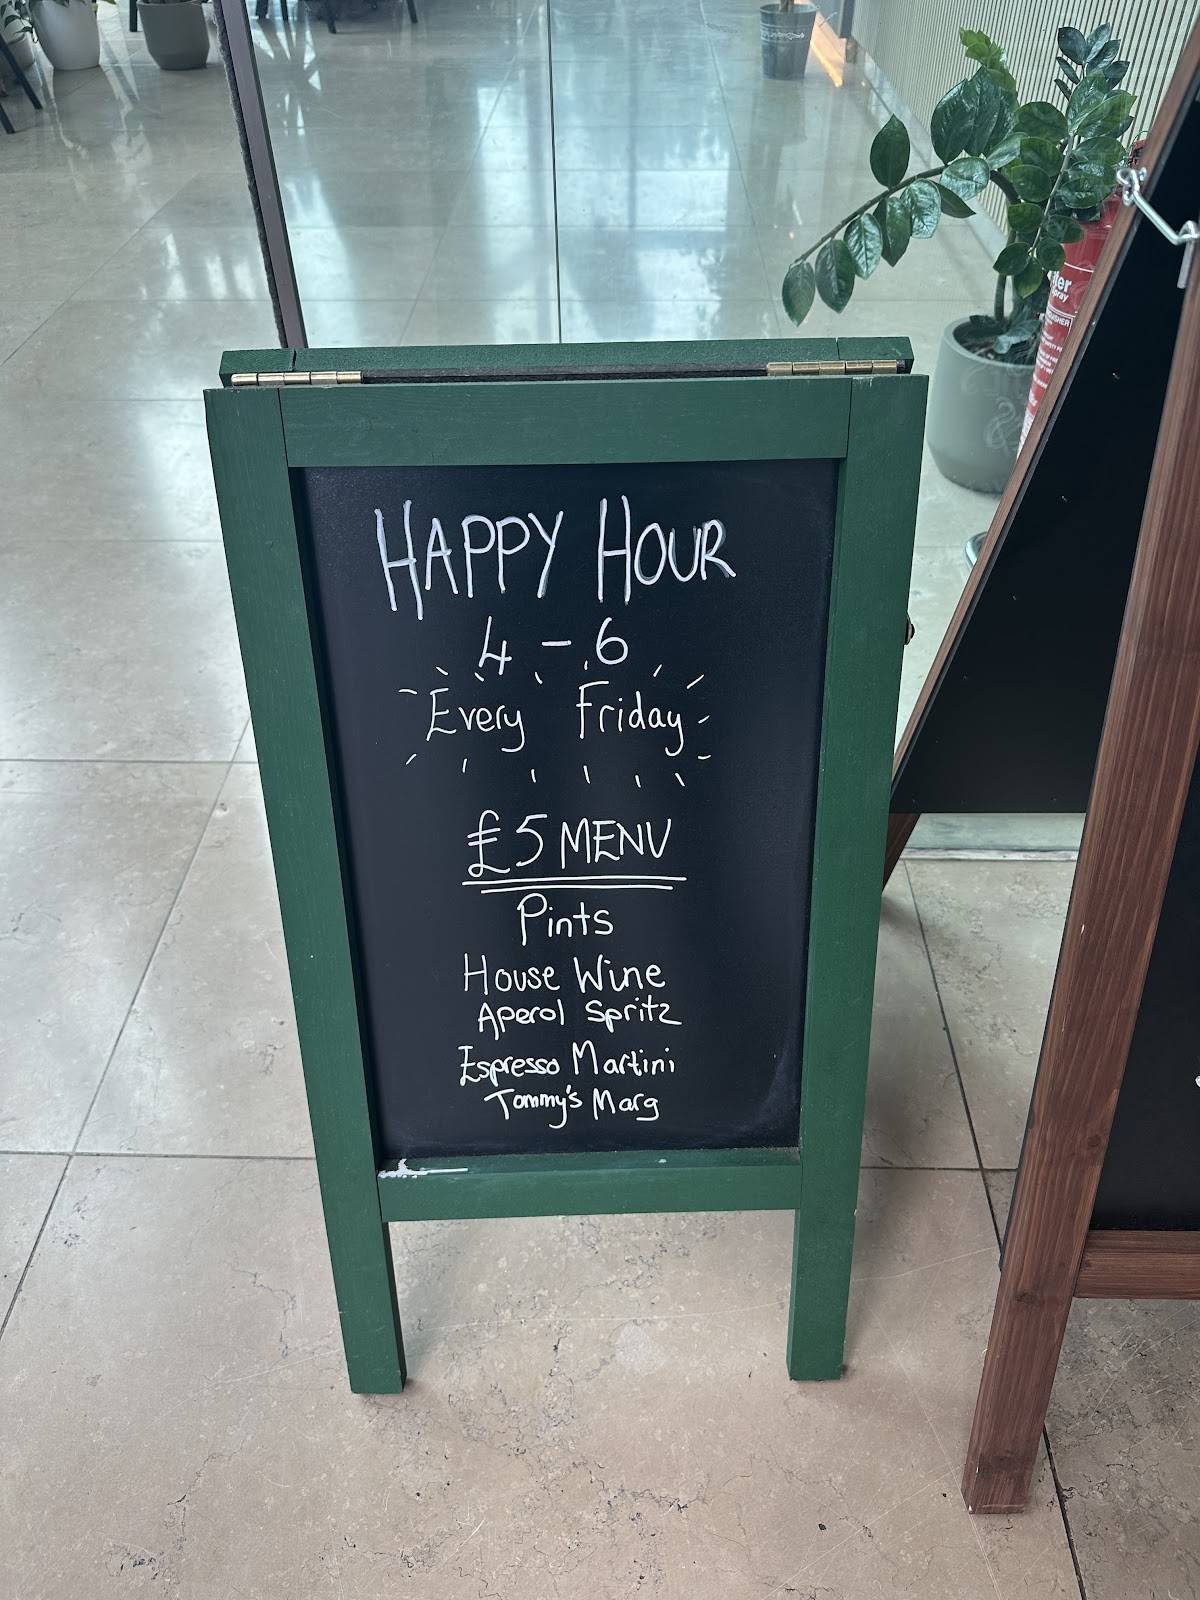 HAPPY HOUR
4 - 6
Every Friday
£5 MENU
Pints
House Wine
Aperol Spritz
Espresso Martini
Tommy's Marg